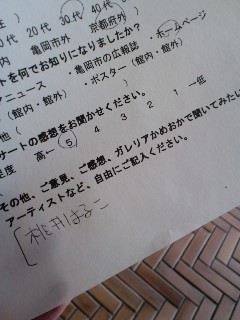 0代 20代 30代 40代
亀岡市外 京都府外 )
トを何でお知りになりましたか?
ニュース ・亀岡市の広報誌 ・ホームページ
(館内・館外) ・ポスター(館内・館外)
他( )
サートの感想をお聞かせください。
足度 高― 5 4 3 2 1 ―低
その他、ご意見、ご感想、ガレリアかめおかで聞いてみたい
アーティストなど、自由にご記入ください。
[桃井はるこ